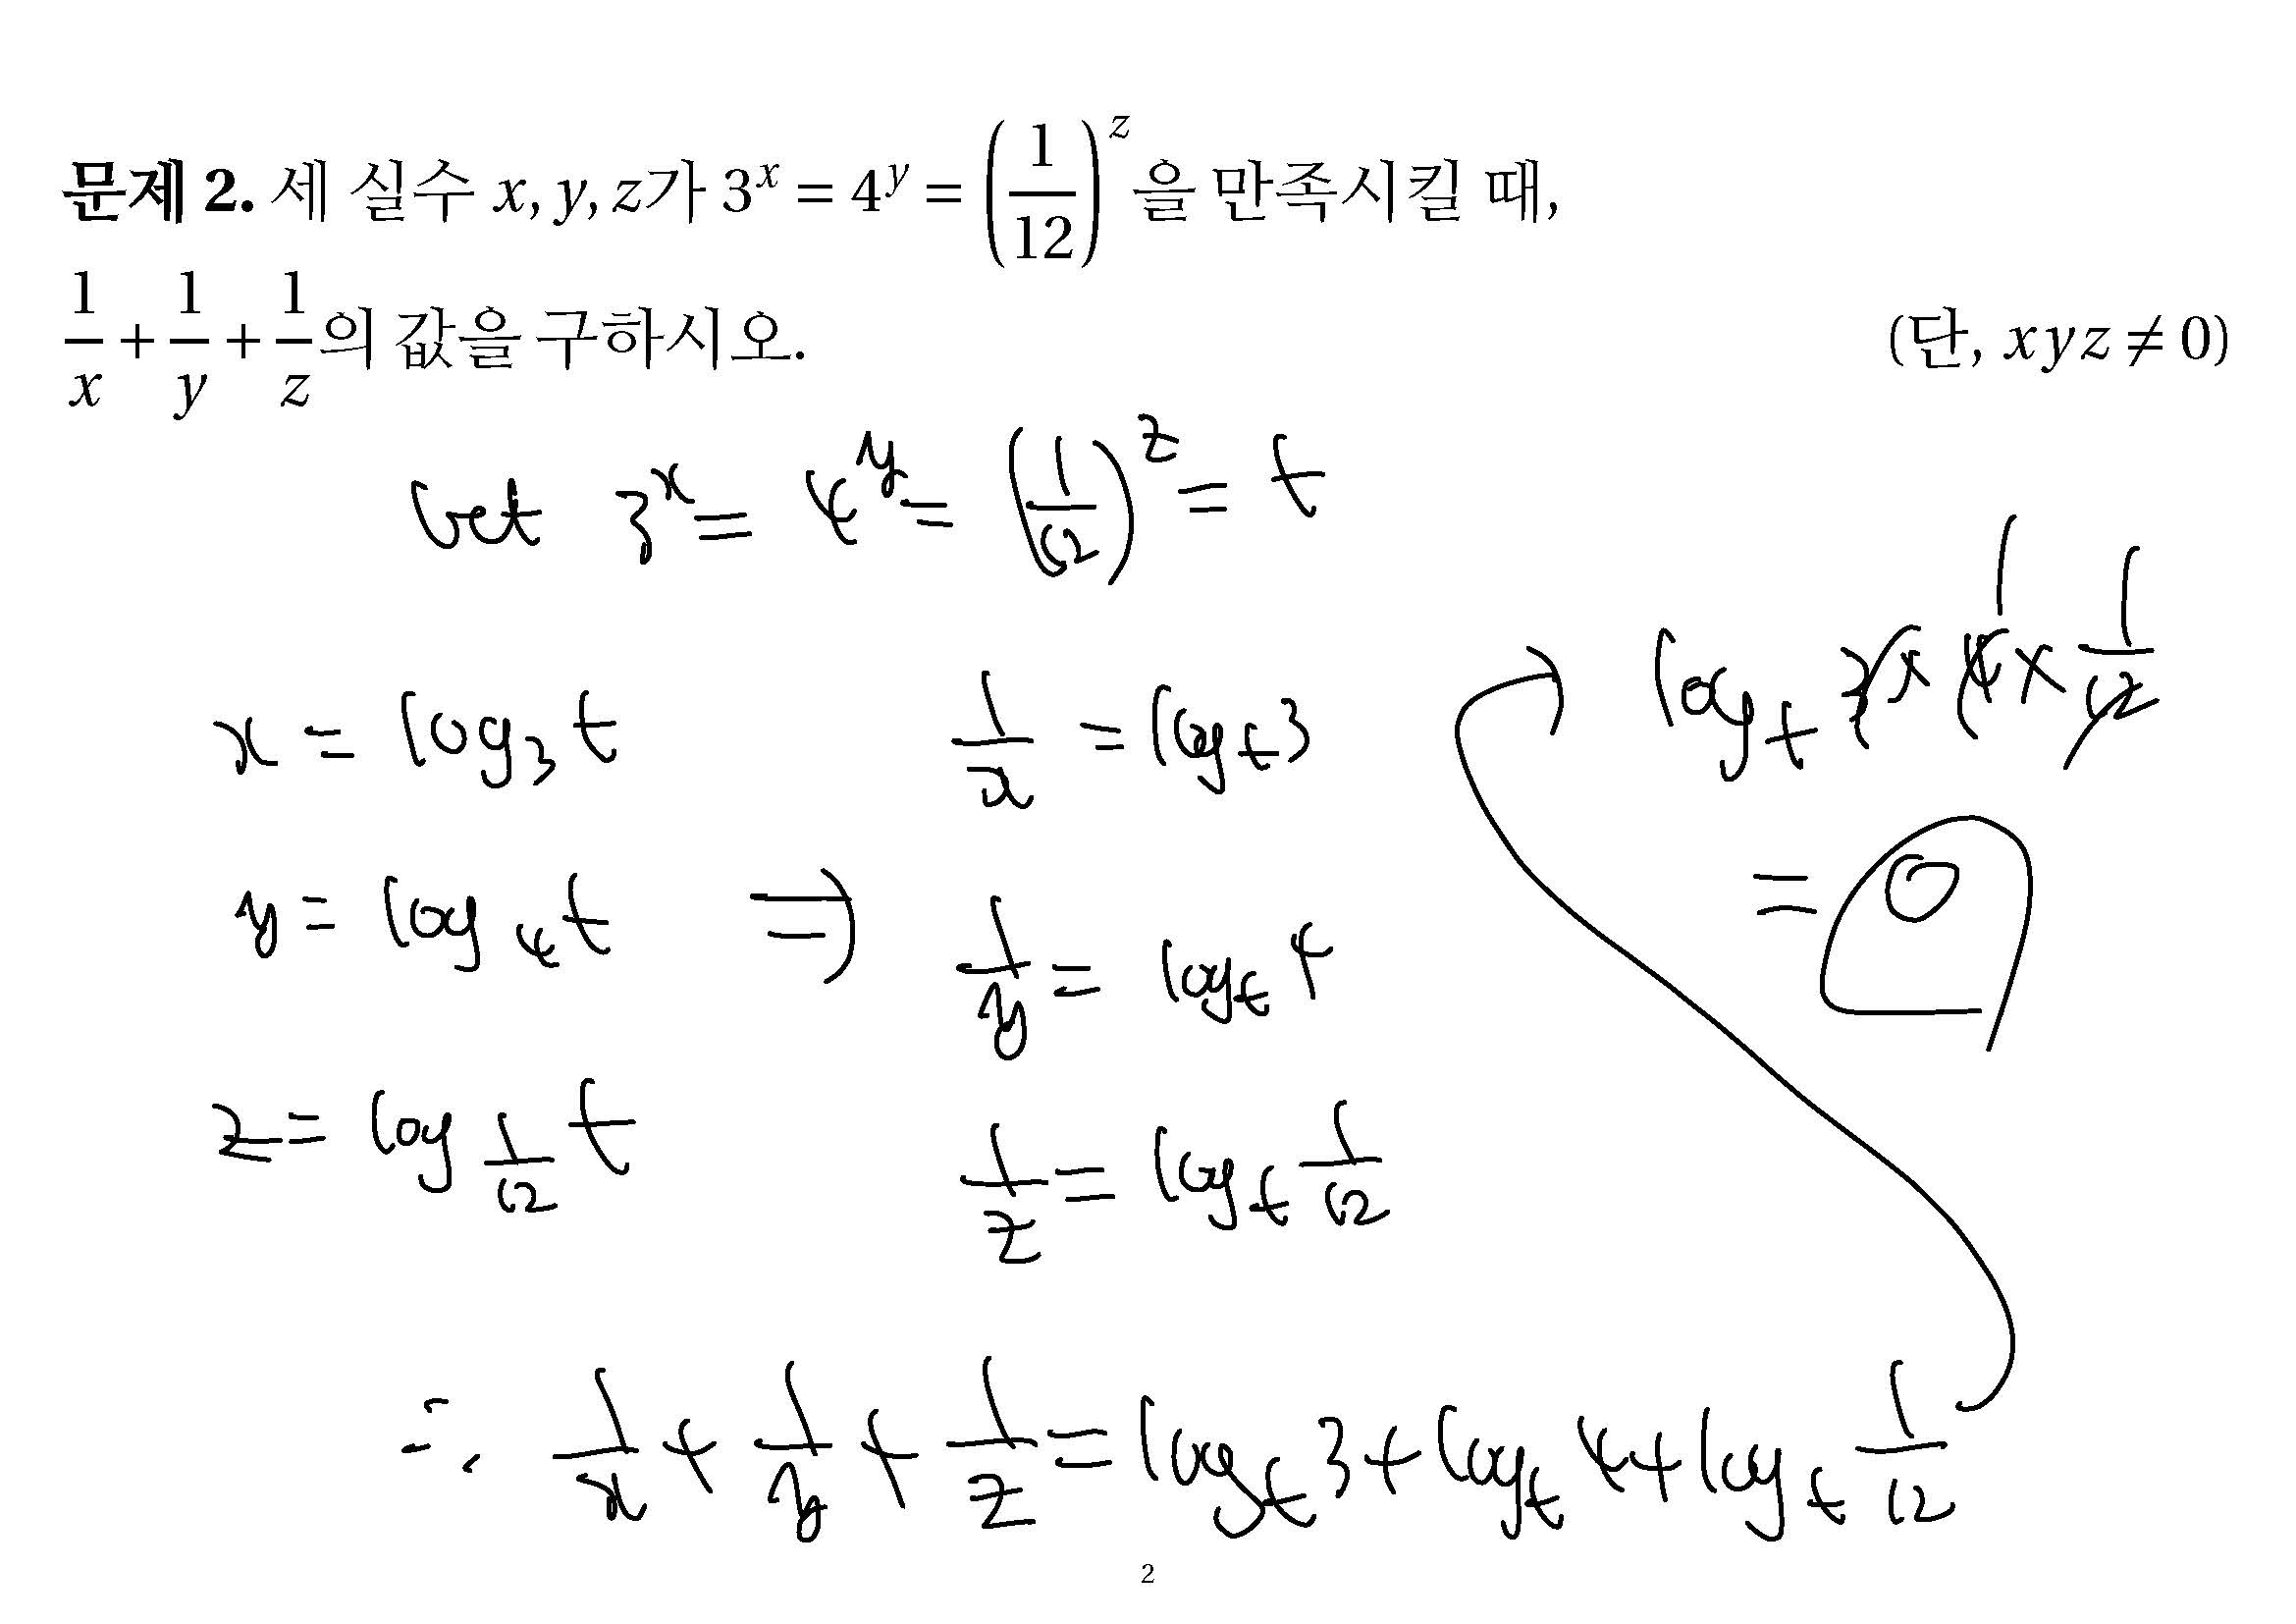 문제 2. 세 실수 x, y, z가 3^x = 4^y = (1/12)^z 을 만족시킬 때,
1/x + 1/y + 1/z 의 값을 구하시오. (단, xyz ≠ 0)
let 3^x = 4^y = (1/12)^z = t
x = log_3 t
y = log_4 t ⇒
z = log_{1/12} t
1/x = log_t 3
1/y = log_t 4
1/z = log_t 1/12
∴ 1/x + 1/y + 1/z = log_t 3 + log_t 4 + log_t 1/12
→ log_t 3 × 4 × 1/12
1
= 0
2